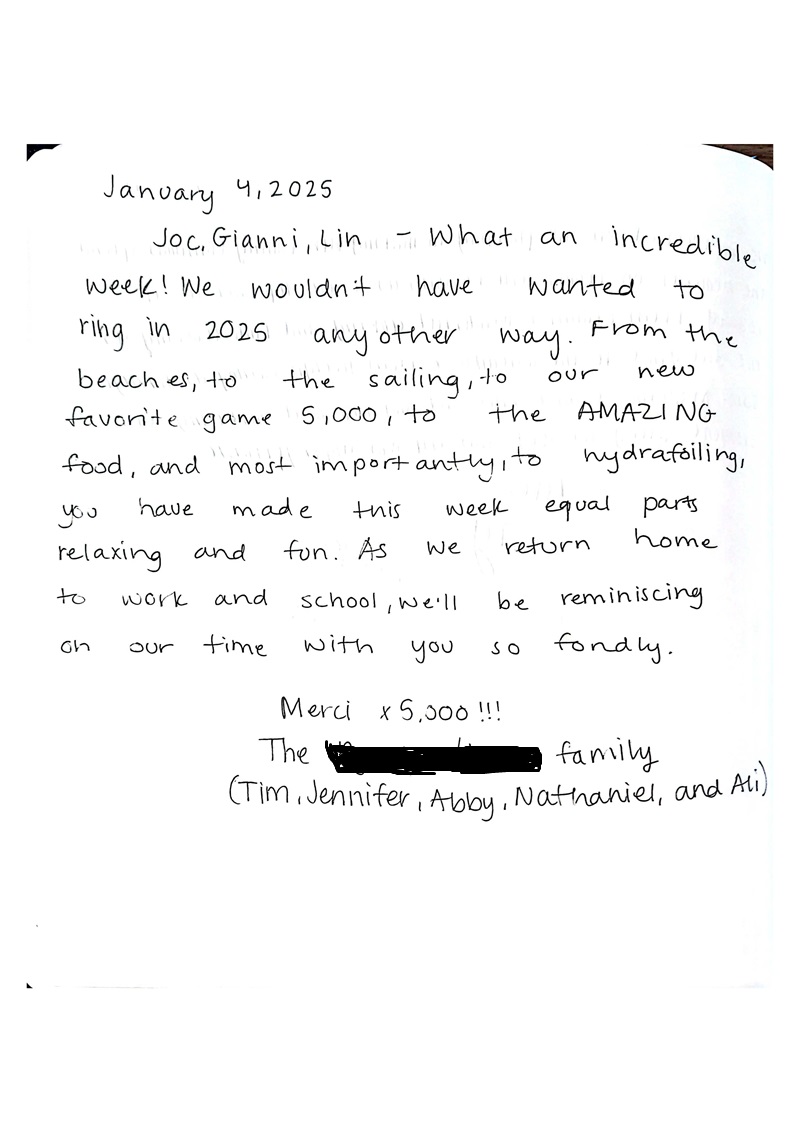 January 4, 2025
Joc, Gianni, Lin - What an incredible
week! We wouldn't have wanted to
ring in 2025 any other way. From the
beaches, to the sailing, to our new
favorite game 5,000, to the AMAZING
food, and most importantly, to hydrafoiling,
you have made this week equal parts
relaxing and fun. As we return home
to work and school, we'll be reminiscing
on our time with you so fondly.
Merci x 5,000 !!!
The family
(Tim, Jennifer, Abby, Nathaniel, and Ali)